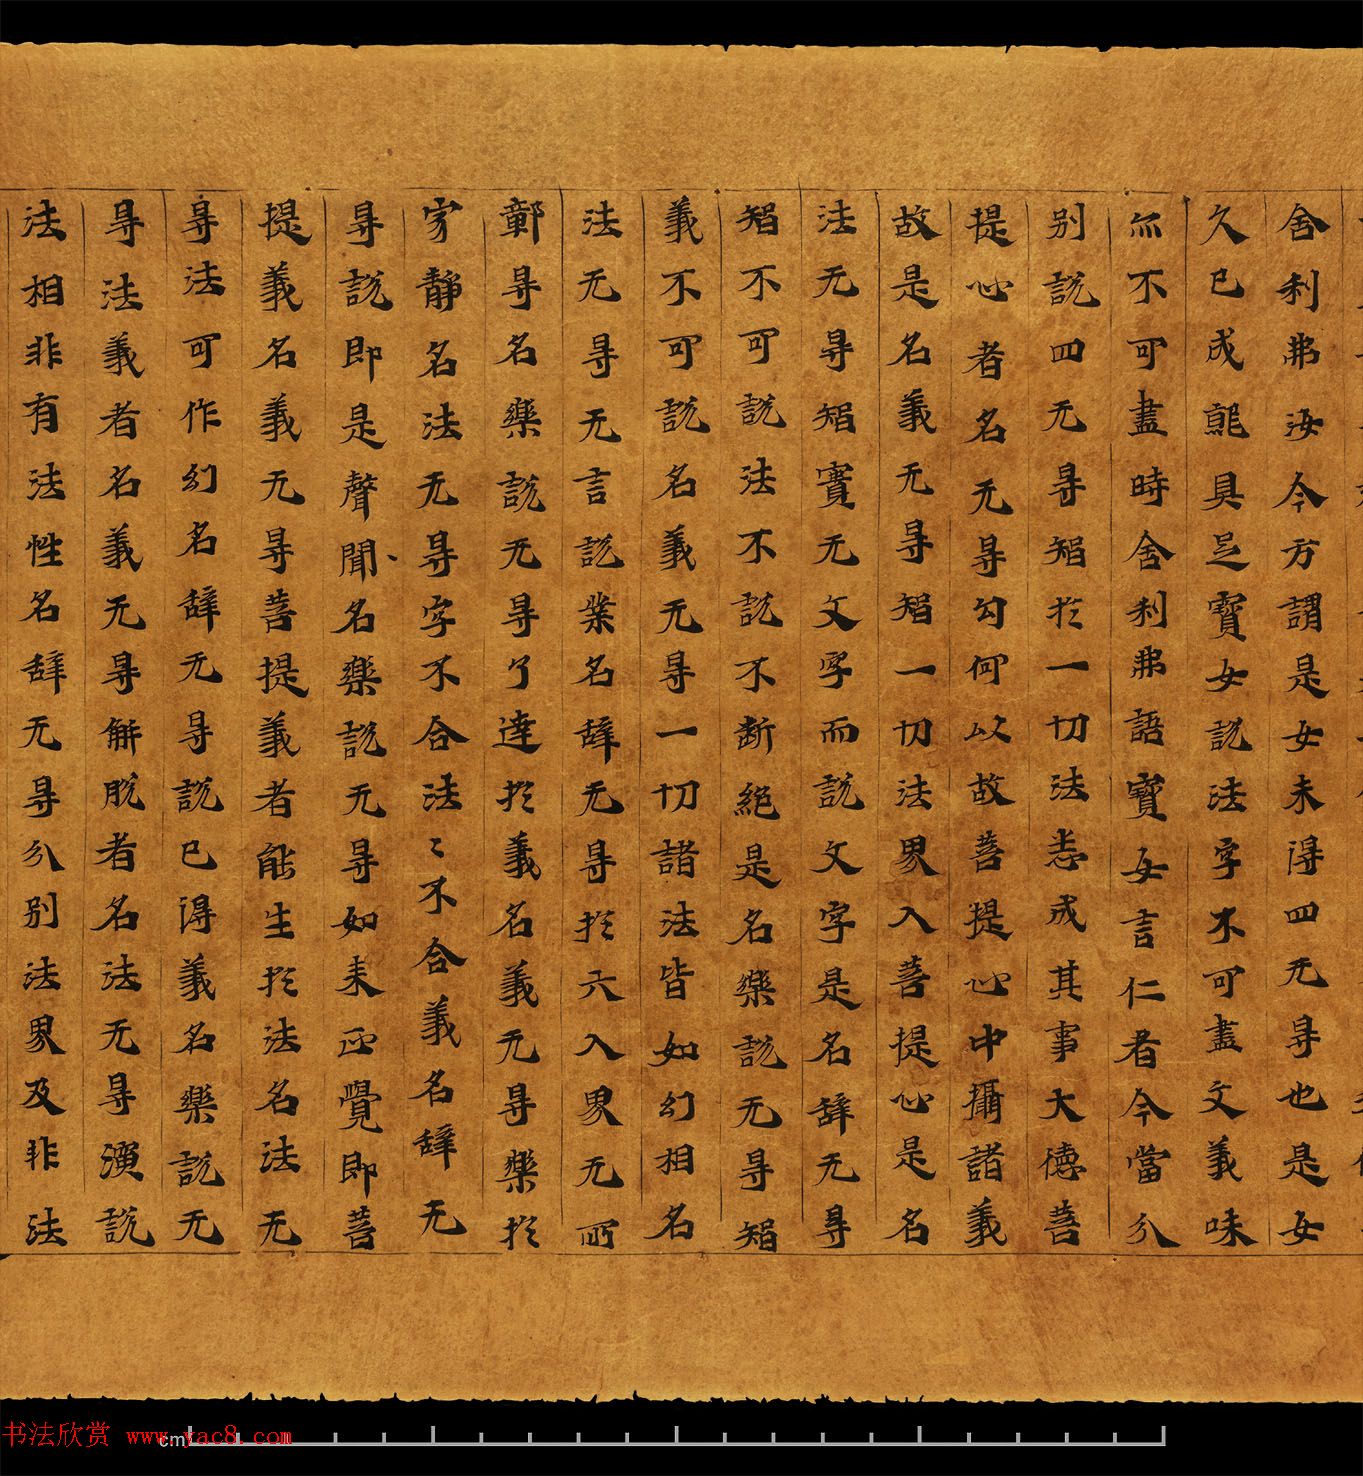 舍利弗汝今方謂是女未得四无㝵也是女
久已成就具足寶女說法字不可盡文義味
亦不可盡時舍利弗語寶女言仁者今當分
别說四无㝵智於一切法悉成其事大德菩
提心者名无㝵句何以故菩提心中攝諸義
故是名義无㝵智一切法界入菩提心是名
法无㝵智實无文字而說文字是名辝无㝵
智不可說法不說不断絕是名樂說无㝵智
義不可說名義无㝵一切諸法皆如幻相名
法无㝵无言說業名辝无㝵於六入界无所
鄣㝵名樂說无㝵了達於義名義无㝵樂於
穽静名法无㝵字不合法〻不合義名辝无
㝵說即是聲聞名樂說无㝵如来正覺即菩
提義名義无㝵菩提義者能生於法名法无
㝵法可作幻名辝无㝵說已得義名樂說无
㝵法義者名義无㝵解脱者名法无㝵演說
法相非有法性名辝无㝵分别法界及非法
cm
书法欣赏 www.yac8.com